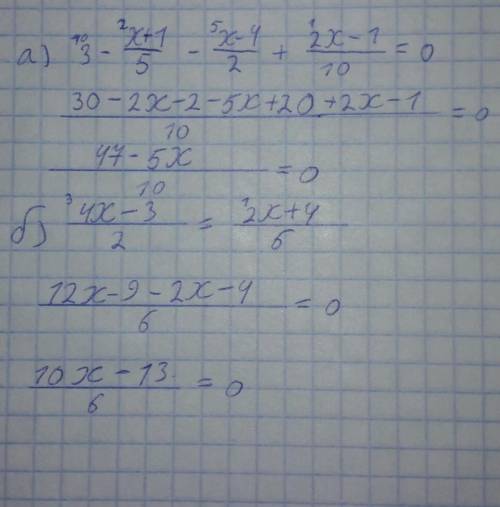 а) ¹⁰3 - ²(x+1)/5 - ⁵(x-4)/2 + ¹(2x-1)/10 = 0
(30-2x-2-5x+20+2x-1)/10 = 0
(47-5x)/10 = 0
б) ³(4x-3)/2 = ¹(2x+4)/6
(12x-9-2x-4)/6 = 0
(10x-13)/6 = 0